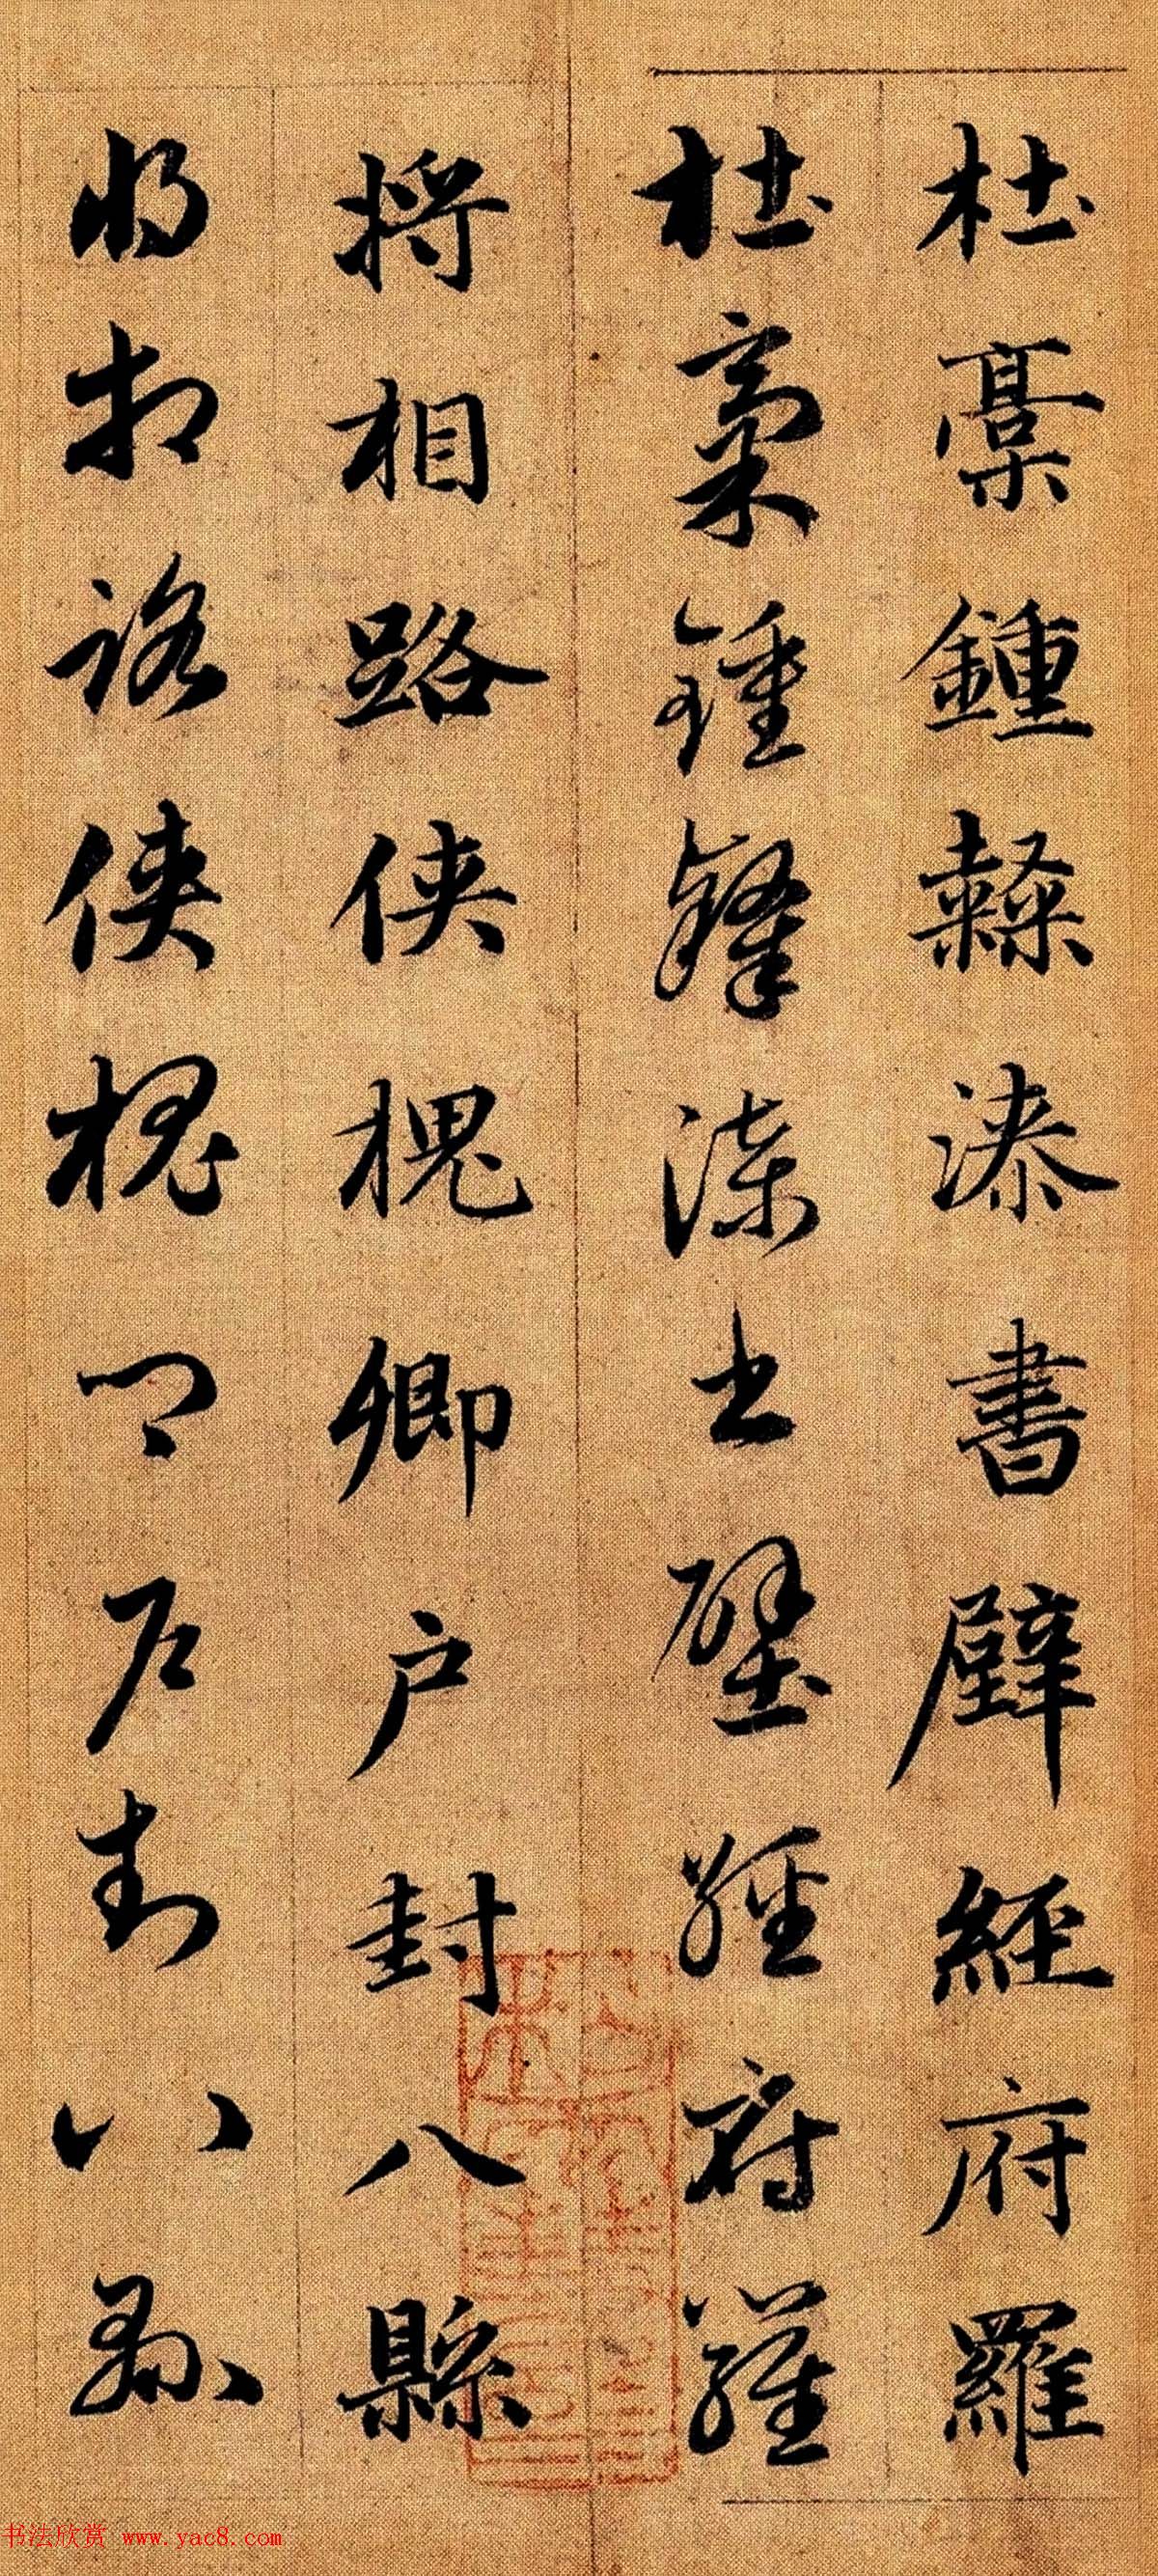 杜稾鍾隸漆書壁經府羅
杜稾鍾隸漆書壁經府羅
將相路俠槐卿户封八縣
將相路俠槐卿户封八縣
书法欣赏 www.yac8.com